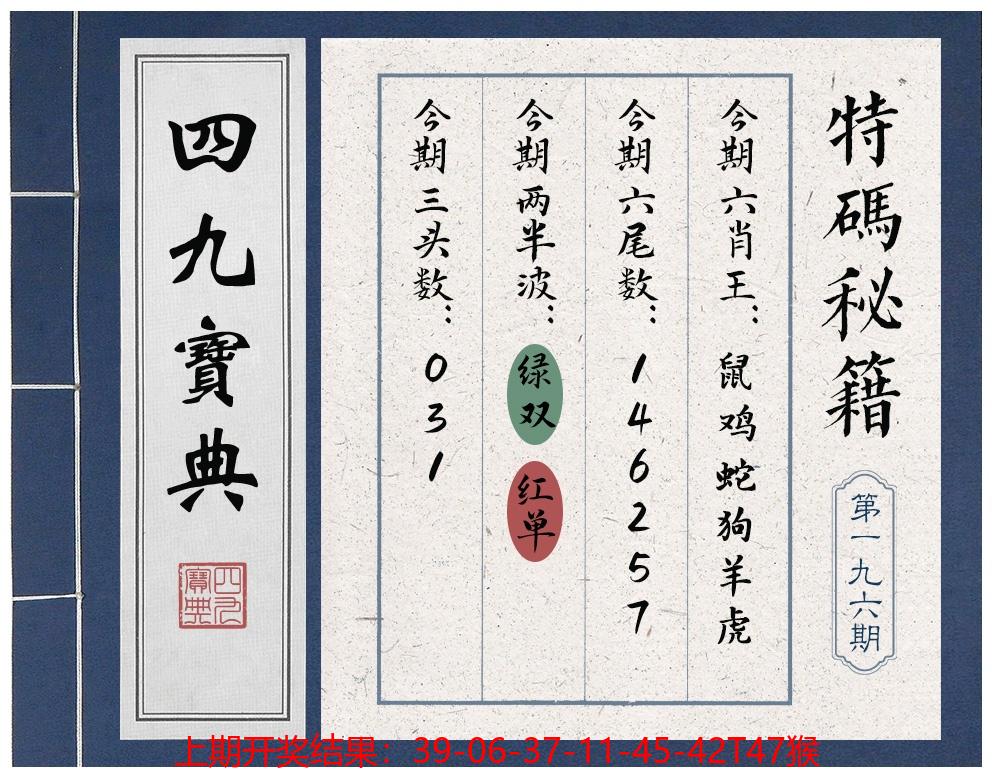 特碼秘籍
第一九六期
今期六肖王：鼠鸡蛇狗羊虎
今期六尾数：146257
今期两半波：绿双 红单
今期三头数：031
四九寶典
四九寶典
上期开奖结果：39-06-37-11-45-42T47猴